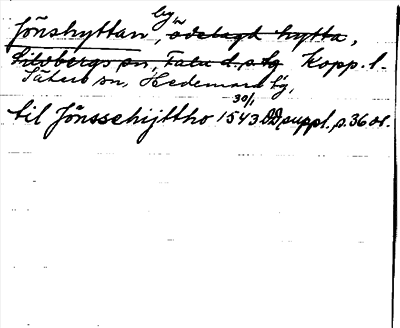 by
Jönshyttan, ödelagd hytta,
Silvbergs sn, Falu d. s tg Kopp. l.
Säters sn, Hedemora tg,
30/1
til Jönssehijttho 1543 DD, suppl., s. 36 or.